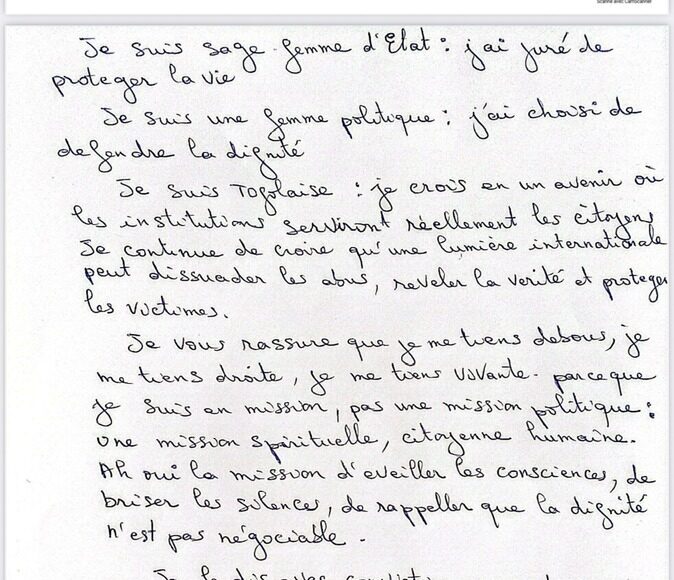 Scanné avec CamScanner
Je suis sage-femme d'Etat : j'ai juré de
proteger la vie
Je suis une femme politique : j'ai choisi de
defendre la dignité
Je suis Togolaise : je crois en un avenir où
les institutions serviront réellement les citoyens
Je continue de croire qu'une lumière internationale
peut dissuader les abus, reveler la verité et proteger
les victimes.
Je vous rassure que je me tiens debous, je
me tiens droite, je me tiens vivante. parceque
je suis en mission, pas une mission politique :
une mission spirituelle, citoyenne humaine.
Ah oui la mission d'eveiller les consciences, de
briser les silences, de rappeller que la dignité
n'est pas négociable.
Je le dis avec